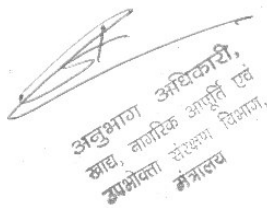 अनुभाग अधिकारी,
खाद्य, नागरिक आपूर्ति एवं
उपभोक्ता संरक्षण विभाग,
मंत्रालय